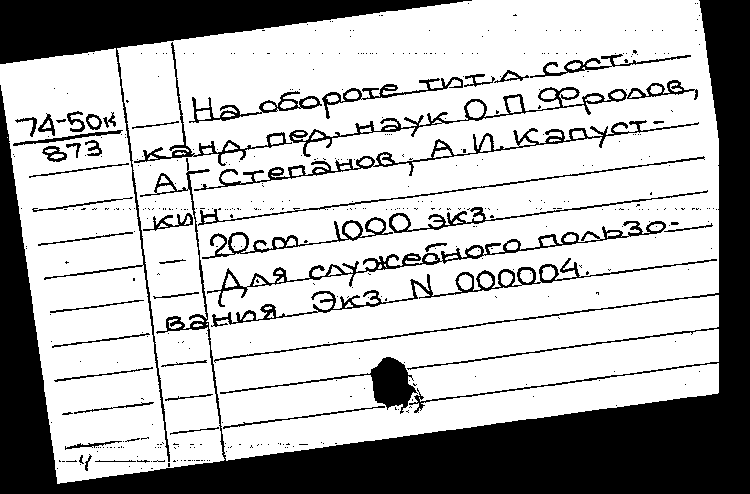 74-50к
873
На обороте тит.л. сост.:
канд. пед. наук О.П.Фролов,
А.Г.Степанов, А.И.Капуст-
кин.
20см. 1000 экз.
Для служебного пользо-
вания. Экз. N 000004.